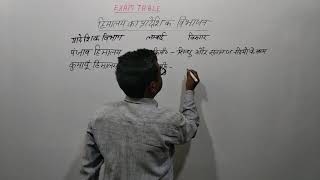 EXAM TABLE
हिमालय का प्रादेशिक विभाजन
प्रादेशिक विभाग लम्बाई विस्तार
पंजाब हिमालय किमी - सिन्धु और सतलज नदियों के मध्य
कुमायूं हिमालय -